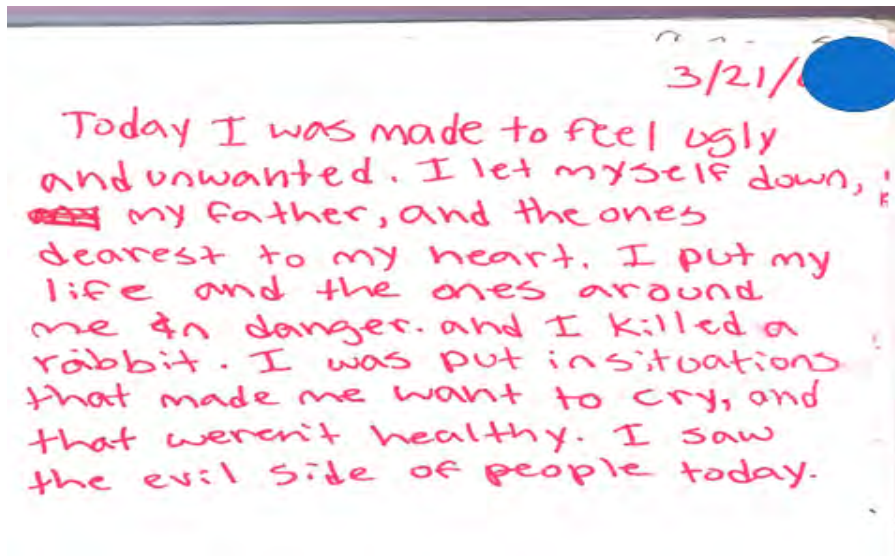 3/21/
Today I was made to feel ugly
and unwanted. I let myself down,
my father, and the ones
dearest to my heart. I put my
life and the ones around
me in danger. and I killed a
rabbit. I was put in situations
that made me want to cry, and
that weren't healthy. I saw
the evil side of people today.